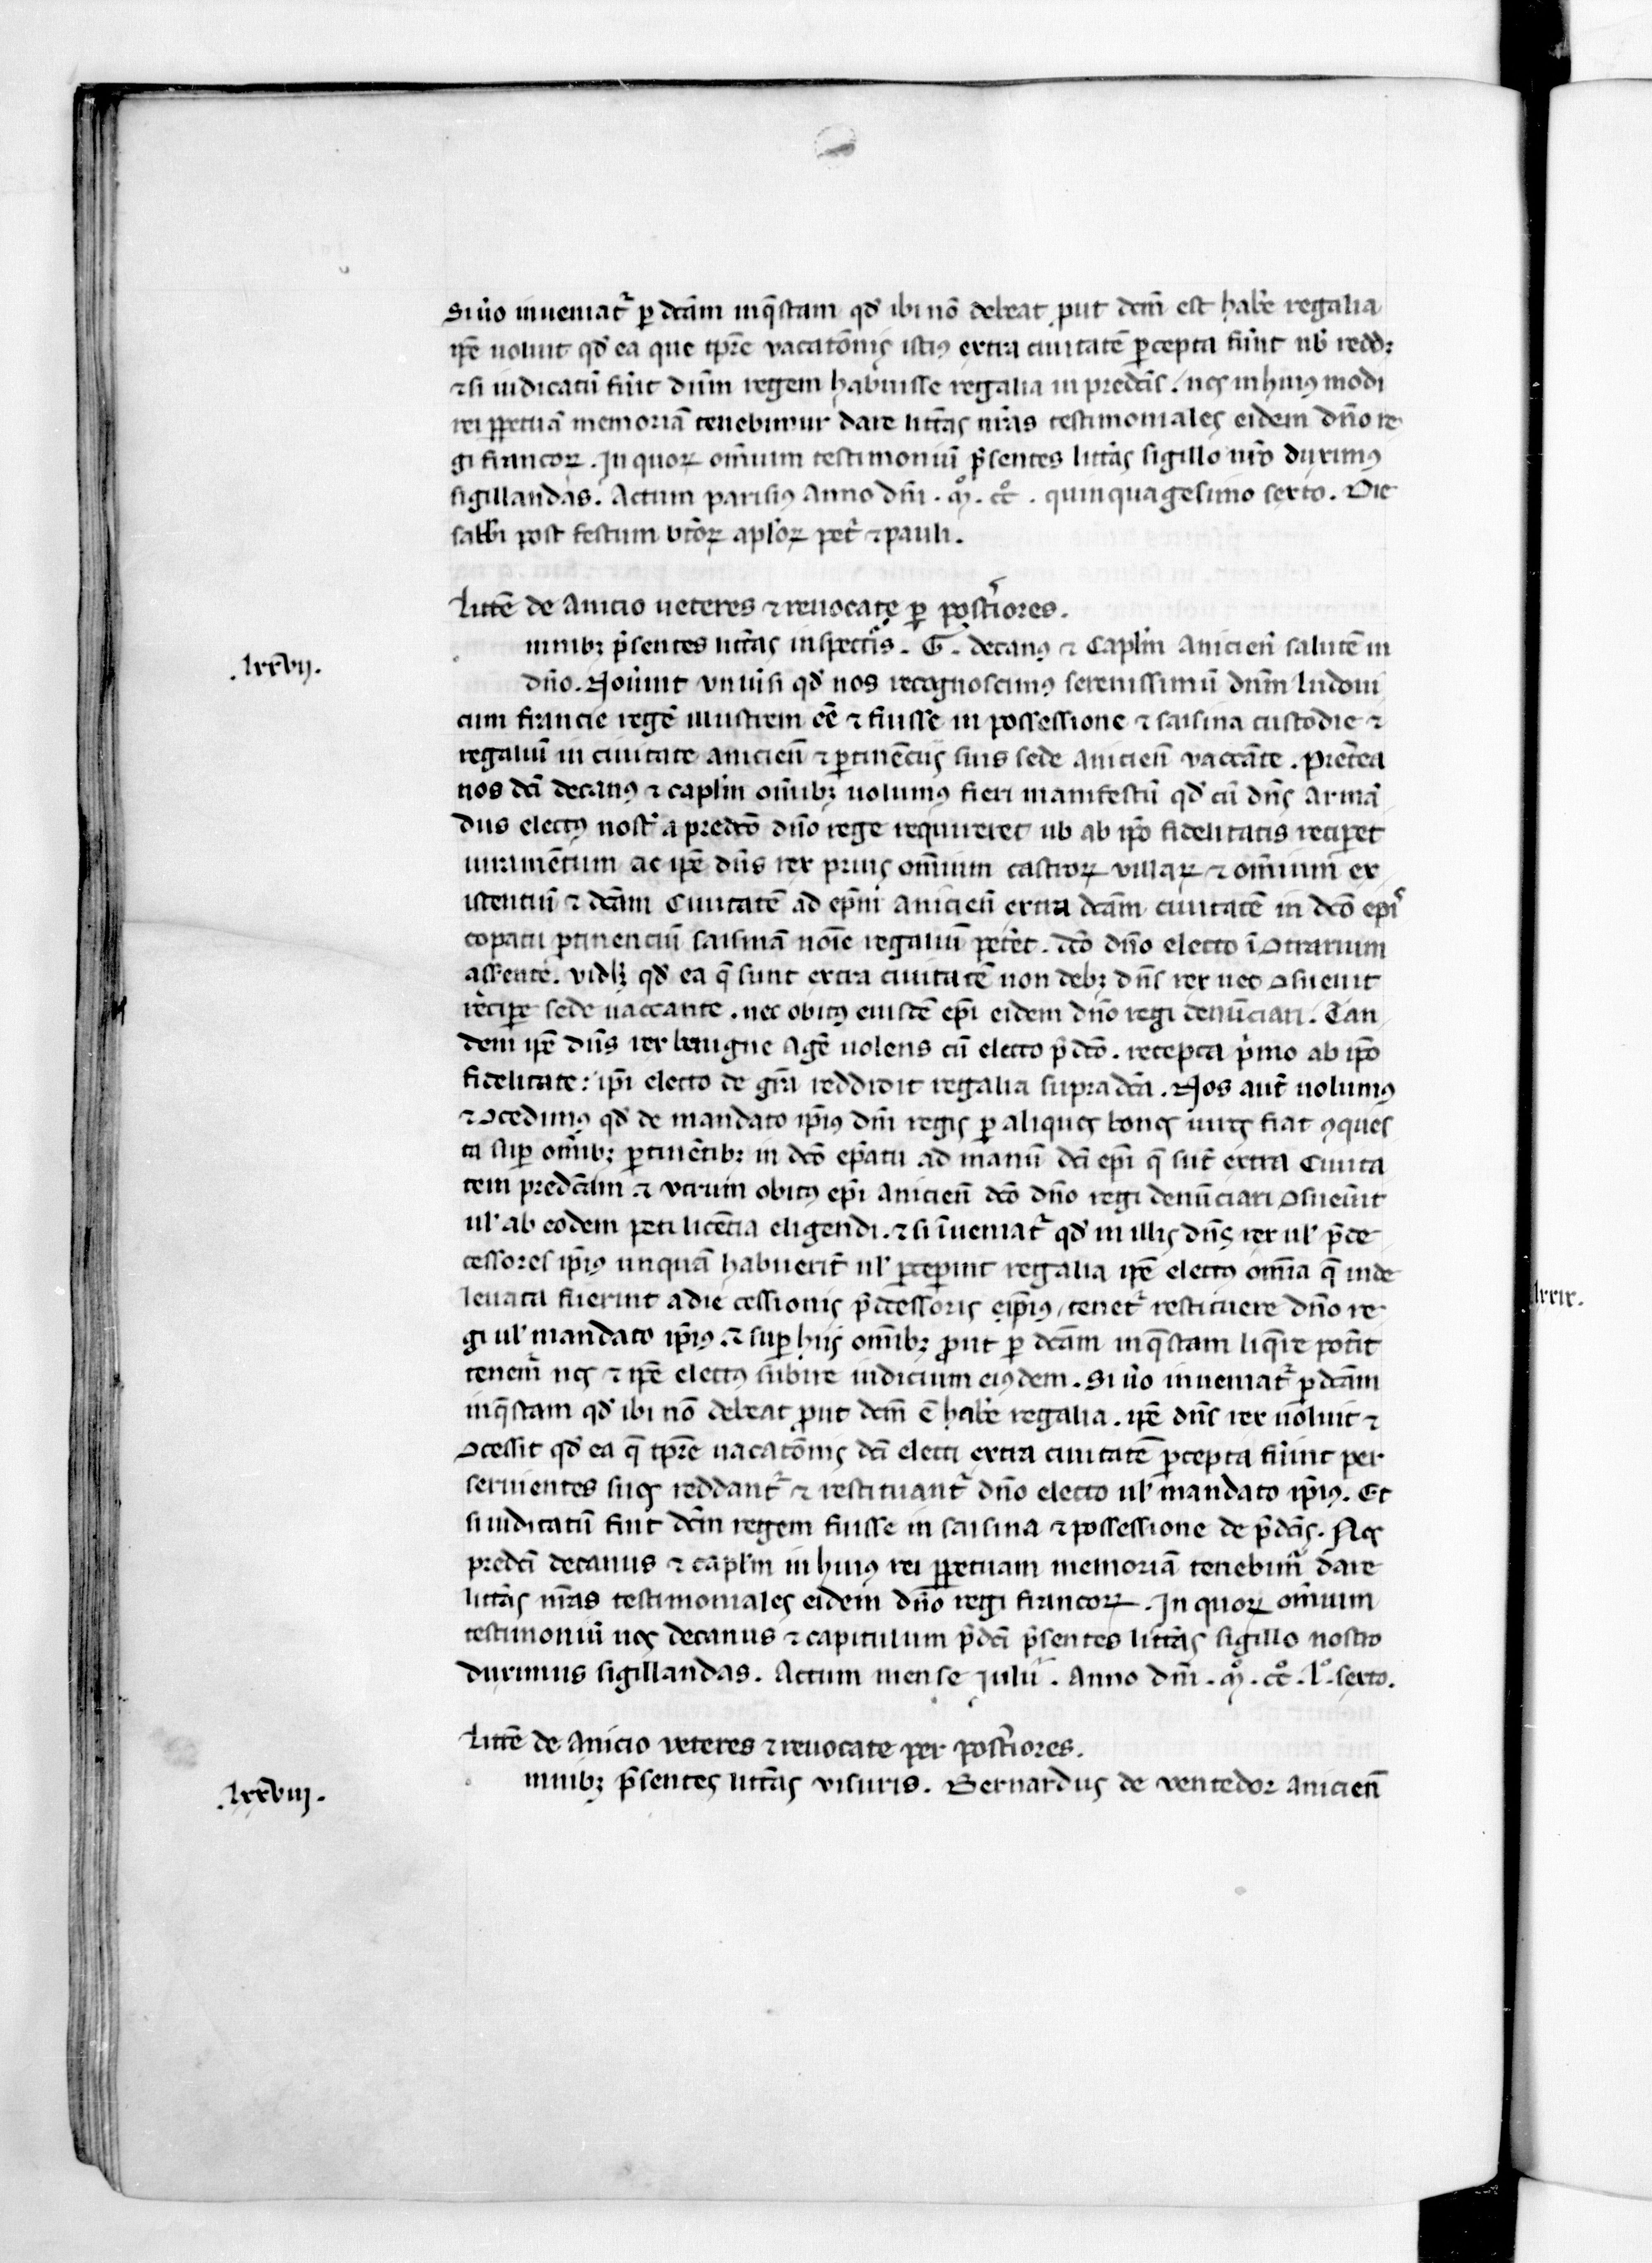 Si u̾o inueniat̾ p̱ dc̄am inq̄stam qd̾ ibi nō debeat put dcm̄ est hab̾e regalia
ip̄e uoluit qd̾ ea que tp̄re vacatōnis istius extra ciuitatē p̱cepta fūint ub̾ redd;
⁊ si iudicatū fūit dn̄m regem habuisse regalia in predc̄is. nos in huiꝰ modi
rei p̱petuā memoriā tenebimur dare litt̄as nr̄as testimoniales eidem dn̄o re
gi francoꝝ. In quoꝝ om̄ium testimoniū p̄sentes litt̄as sigillo nr̄o duximꝰ
sigillandas. Actum parisiꝰ Anno dn̄i. mͦ. ccͦ. quinquagesimo sexto. Die
sabb̄i post festum bt̄oꝝ apl̄oꝝ pet̾ ⁊ pauli.
Litte̅ de Anicio ueteres ⁊ reuocate p̱ post̾iores.
.lxxvij.
mnibꝫ p̄sentes litt̄as inspectis. G. decanꝰ ⁊ Capl̄m Anicien̄ salutē in
dn̄o. Nou̾int vniu̾si qd̾ nos recognoscimꝰ serenissimū dn̄m ludoui
cum francie regē illustrem eē ⁊ fuisse in possessione ⁊ saisina custodie ⁊
regaliū in ciuitate anicien̄ ⁊ p̱tinēciis suis sede Anicien̄ vaccāte. Pret̾ea
nos dc̄i decanꝰ ⁊ capl̄m om̄ibꝫ uolumꝰ fieri manifestū qd̾ cū dn̄s Armā
dus electꝰ nost̾ a predc̄o dn̄o rege requireret ub ab ip̄o fidelitatis recip̱et
iuramētum ac ip̄e dn̄s rex priꝰ om̄ium castroꝝ villaꝝ ⁊ om̄ium ex
istentiū ⁊ dc̄am Ciuitatē ad ep̄m Anicien̄ extra dc̄am ciuitatē in dc̄o epi̾
copatu p̱tinenciū saisinā noīe regaliū pet̾et. dc̄o dn̄o electo ī ↄtrarium
ass̾ente. vidlꝫ qd̾ ea q̄ sunt extra ciuitatē non debꝫ dn̄s rex nec ↄsueuit
recip̱e sede uaccante. nec obitꝰ eiusdē ep̄i eidem dn̄o regi denūciari. Tan
dem ip̄e dn̄s rex benigne Agē uolens cū electo p̄dc̄o. recepta p̾mo ab ip̄o
fidelitate: ip̄i electo de gr̄a reddidit regalia supradc̄a. Nos aut̾ uolumꝰ
⁊ ↄcedimꝰ qd̾ de mandato ip̄ius dn̄i regis p̱ aliquos bonos uiros fiat ꝯques
ta sup̱ om̄ibꝫ p̱tinētibꝫ in dc̄o ep̄atu ad manū dc̄i ep̄i q̄ sūt extra Ciuita
tem predc̄am ⁊ vtrum obitꝰ ep̄i Anicien̄ dc̄o dn̄o regi denūciari ↄsueūit
ul̾ ab eodem peti licēcia eligendi. ⁊ si īueniat̾ qd̾ in illis dn̄s rex ul̾ p̄de
cessores ip̄iꝰ unquā habuerit̾ ul̾ p̱cep̱int regalia ip̄e electꝰ om̄ia q̄ inde
leuata fuerint a die cessionis p̄dcessoris eip̄iꝰ, tenet̾ restituere dn̄o re
gi ul̾ mandato ip̄iꝰ. ⁊ sup̱ hijs om̄ibꝫ ꝓut p̱ dc̄am inq̄stam liq̄re pot̾it
tenem̾ nos ⁊ ip̄e electꝰ subire iudicium eiꝰdem. Si u̾o inueniat̾ p̱ dc̄am
inq̄stam qd̾ ibi nō debeat ꝓut dcm̄ ē hab̾e regalia. ip̄e dn̄s rex uoluit ⁊
ↄcessit qd̾ ea q̄ tp̄re uacatōnis dc̄i electi extra ciuitatē p̱cepta fūint per
seruientes suos reddant̾ ⁊ restituant̾ dn̄o electo ul̾ mandato ip̄iꝰ. Et
si iudicatū fuit dc̄m regem fuisse in saisina ⁊ possessione de p̄dc̄is. Nos
predc̄i decanus ⁊ capl̄m in huiꝰ rei p̱petuam memoriā tenebim̾ dare
litt̄as nr̄as testimoniales eidem dn̄o regi francoꝝ. In quoꝝ om̄ium
testimoniū nos decanus ⁊ capitulum p̄dc̄i p̄sentes litt̄as sigillo nostro
duximus sigillandas. Actum mense Julii. Anno dn̄i. mͦ. ccͦ. lͦ. sexto.
Litte̅ de Anicio veteres ⁊ reuocate per post̾iores.
.lxxviij.
mnibꝫ p̄sentes litt̄as visuris. Bernardus de ventedor Anicien̄